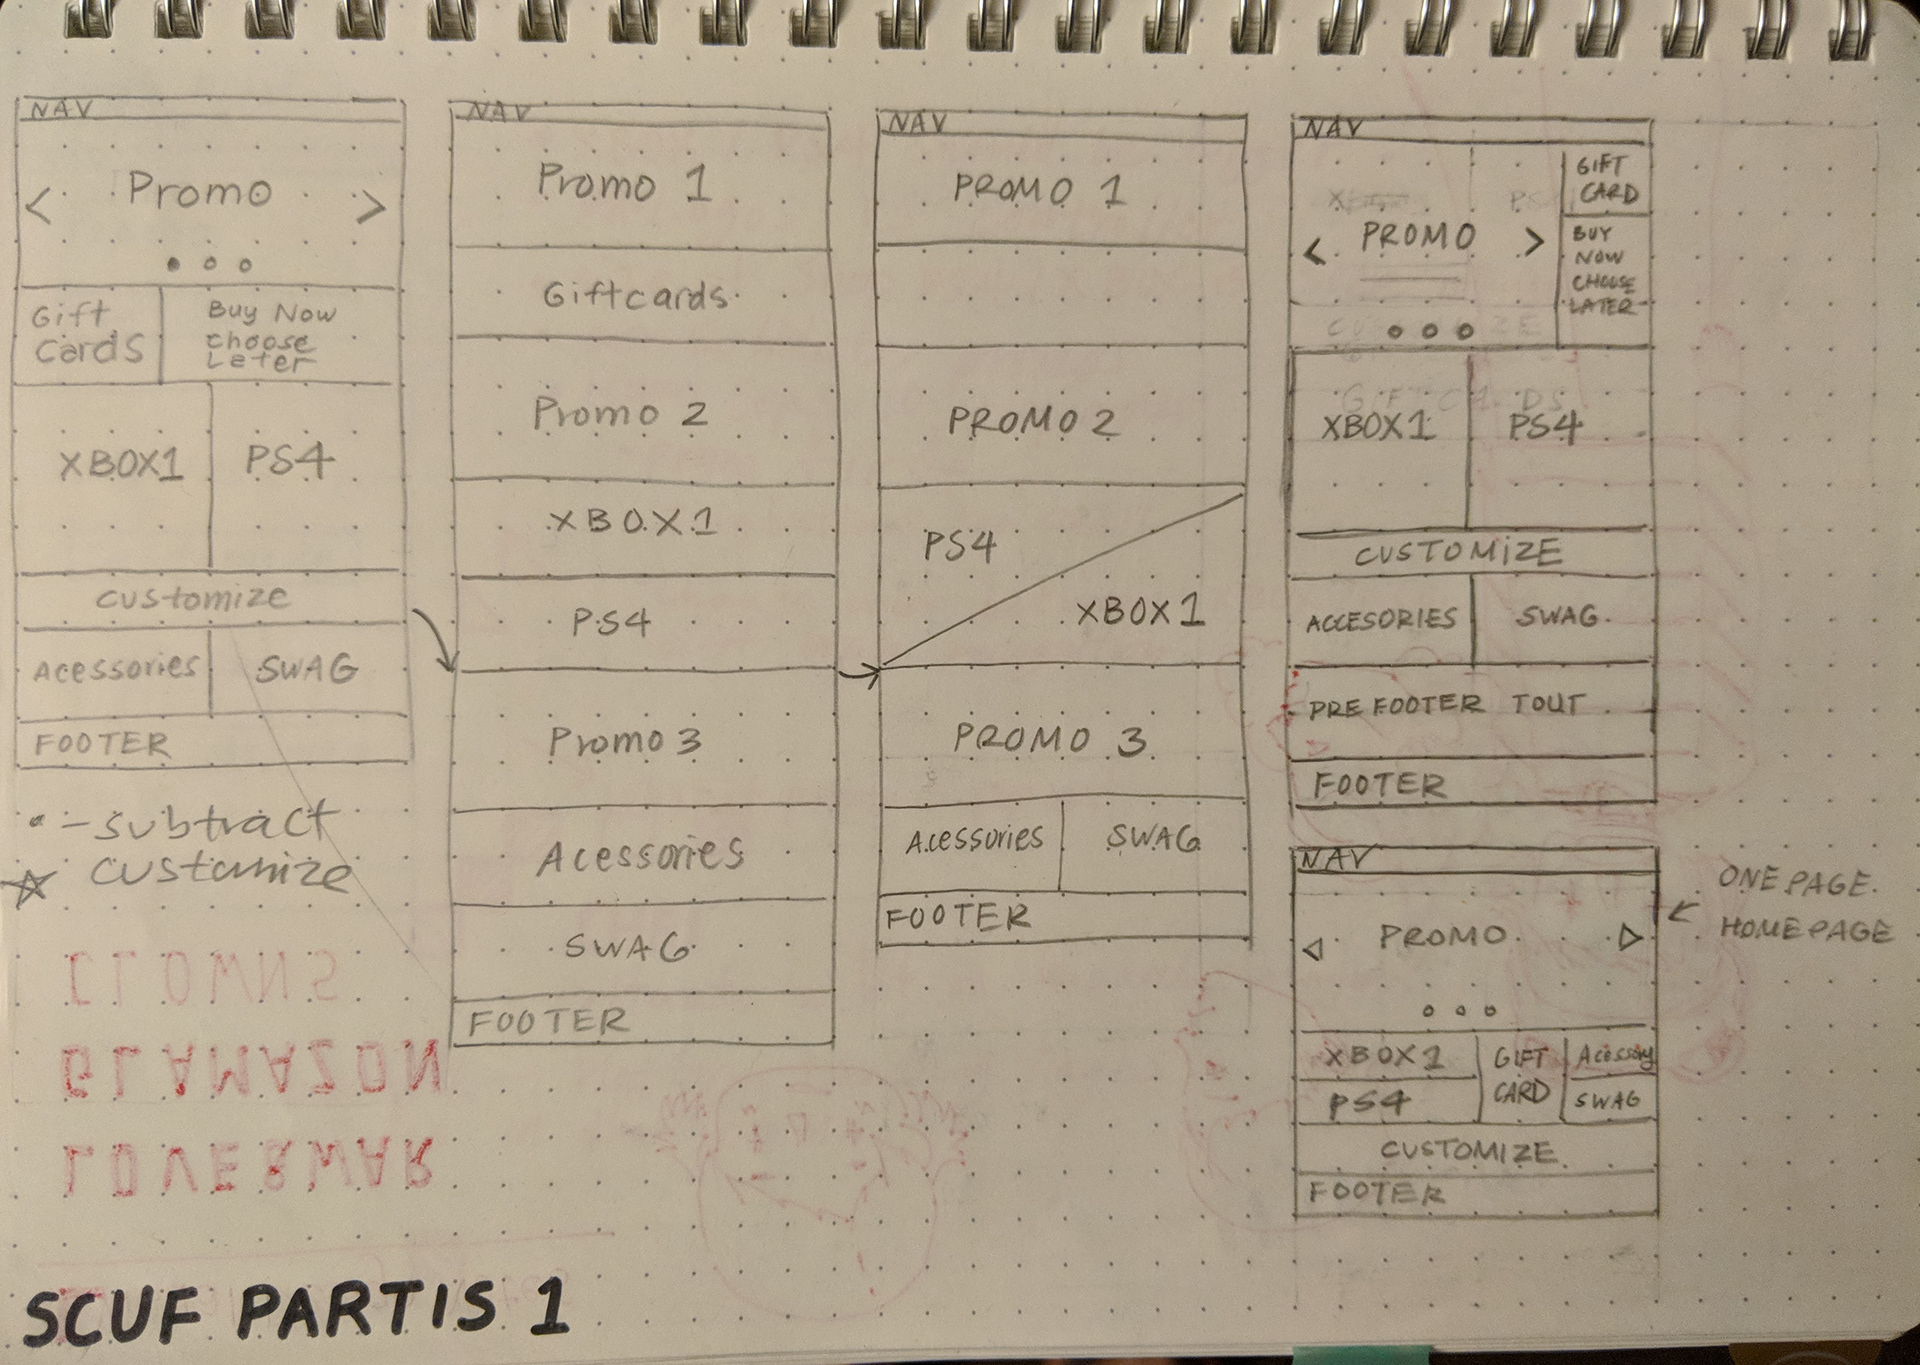 NAV
< Promo >
Gift
Cards
Buy Now
choose
Later
XBOX1
PS4
customize
Acessories
SWAG
FOOTER
- subtract
customize
NAV
Promo 1
Giftcards
Promo 2
XBOX1
PS4
Promo 3
Acessories
SWAG
FOOTER
NAV
PROMO 1
PROMO 2
PS4
XBOX1
PROMO 3
Acessories
SWAG
FOOTER
NAV
< PROMO >
GIFT
CARD
BUY
NOW
CHOOSE
LATER
GIFTCARDS
XBOX1
PS4
CUSTOMIZE
ACCESORIES
SWAG
PRE FOOTER TOUT
FOOTER
NAV
PROMO
XBOX1
PS4
GIFT
CARD
Acessory
SWAG
CUSTOMIZE
FOOTER
ONE PAGE
HOMEPAGE
CLOWNS
GLAMAZON
LOVERWAR
SCUF PARTIS 1